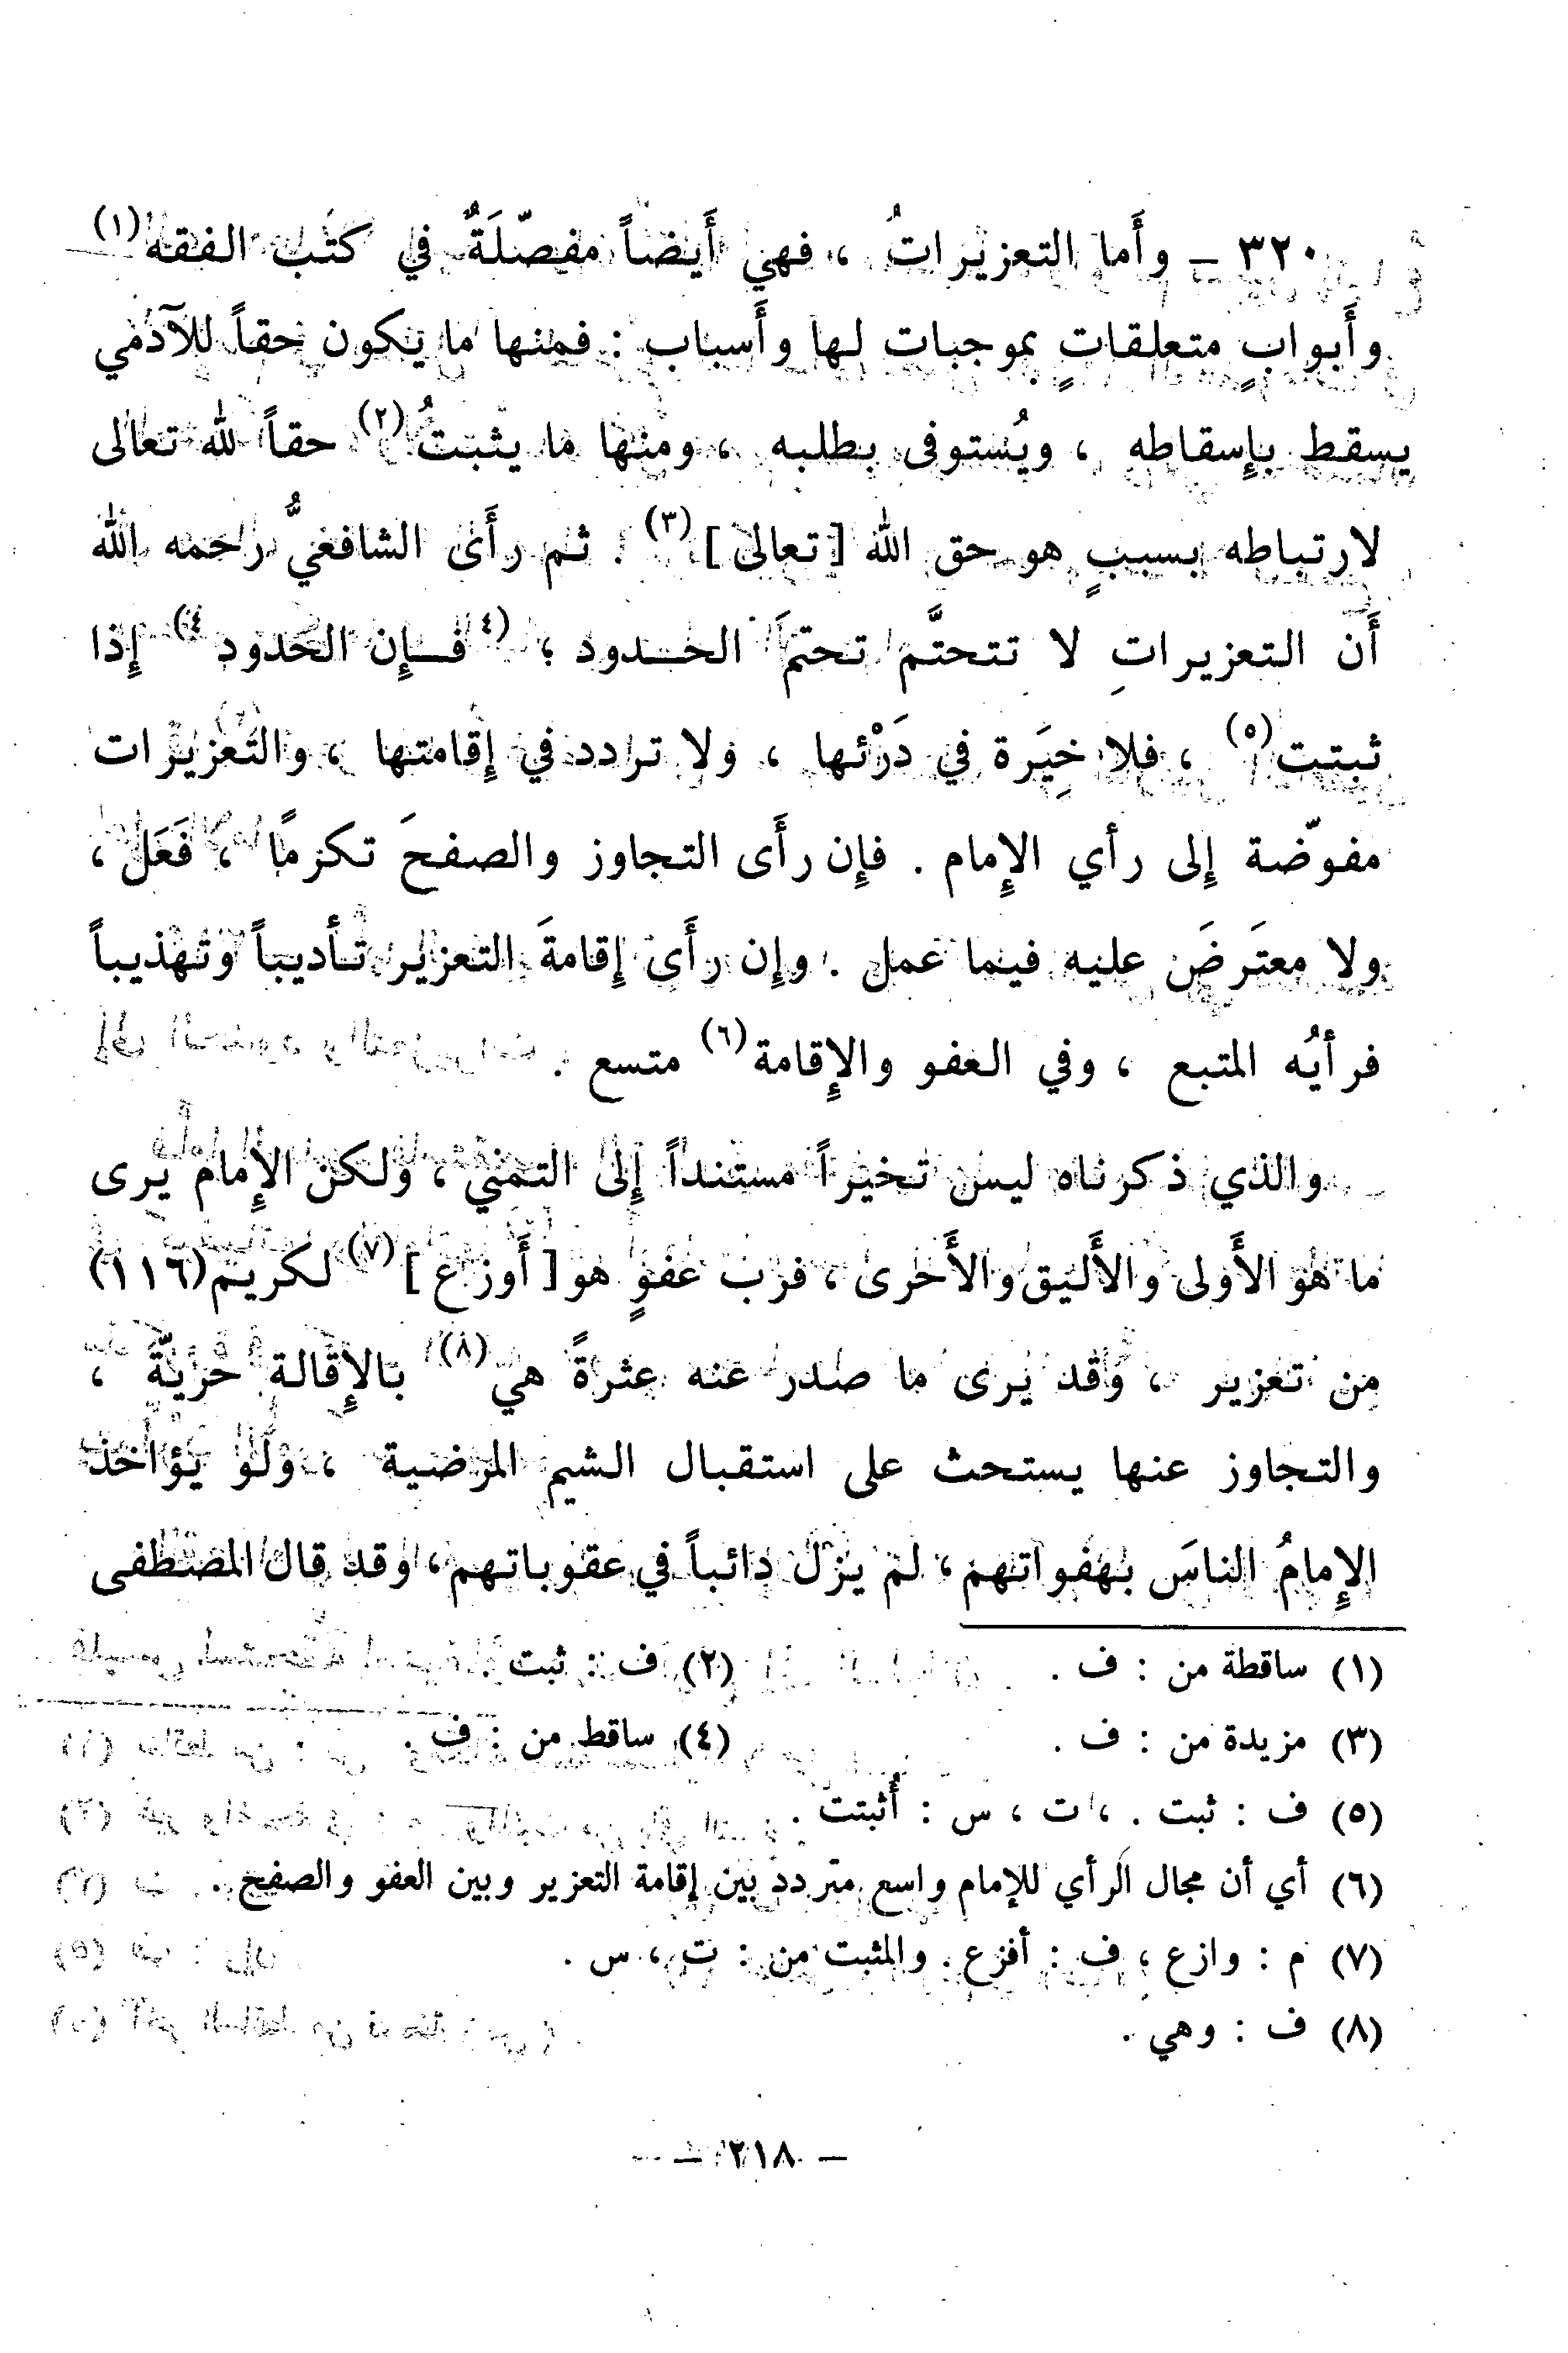 ٣٢٠ – وأَما التعزيراتُ ، فهي أَيضاً مفصّلَةٌ في كتب الفقه(١)
وأَبوابٍ متعلقاتٍ بموجبات لها وأَسباب : فمنها ما يكون حقاً للآدمي
يسقط بإِسقاطه ، ويُستوفى بطلبه ، ومنها ما يثبتُ(٢) حقاً لله تعالى
لارتباطه بسببٍ هو حق الله [ تعالى ](٣) . ثم رأَى الشافعيُّ رحمه الله
أَن التعزيراتِ لا تتحتَّم تحتمَ الحدود ؛ (٤ فإِن الحدود ٤) إِذا
ثبتت(٥) ، فلا خِيَرة في دَرْئها ، ولا تردد في إِقامتها ، والتعزيرات
مفوّضة إِلى رأي الإِمام . فإِن رأَى التجاوز والصفحَ تكرمًا ، فَعَل ،
ولا معتَرضَ عليه فيما عمل . وإِن رأَى إِقامةَ التعزير تأديباً وتهذيباً
فرأيُه المتبع ، وفي العفو والإِقامة(٦) متسع .
والذي ذكرناه ليس تخيراً مستنداً إِلى التمني ، ولكن الإِمام يرى
ما هو الأَولى والأَليق والأَحرى ، فرب عفوٍ هو [ أَوزع ](٧) لكريم (١١٦)
من تعزير ، وقد يرى ما صدر عنه عثرةً هي(٨) بالإِقالة حريّة ،
والتجاوز عنها يستحث على استقبال الشيم المرضية ، ولو يؤاخذ
الإِمامُ الناسَ بهفواتهم ، لم يزل دائباً في عقوباتهم ، وقد قال المصطفى
(١) ساقطة من : ف . (٢) ف : ثبت .
(٣) مزيدة من : ف . (٤) ساقط من : ف .
(٥) ف : ثبت . ، ت ، س : أُثبتت .
(٦) أي أن مجال الرأي للإمام واسع متردد بين إقامة التعزير وبين العفو والصفح .
(٧) م : وازع ، ف : أفزع . والمثبت من : ت ، س .
(٨) ف : وهي .
– ٢١٨ –